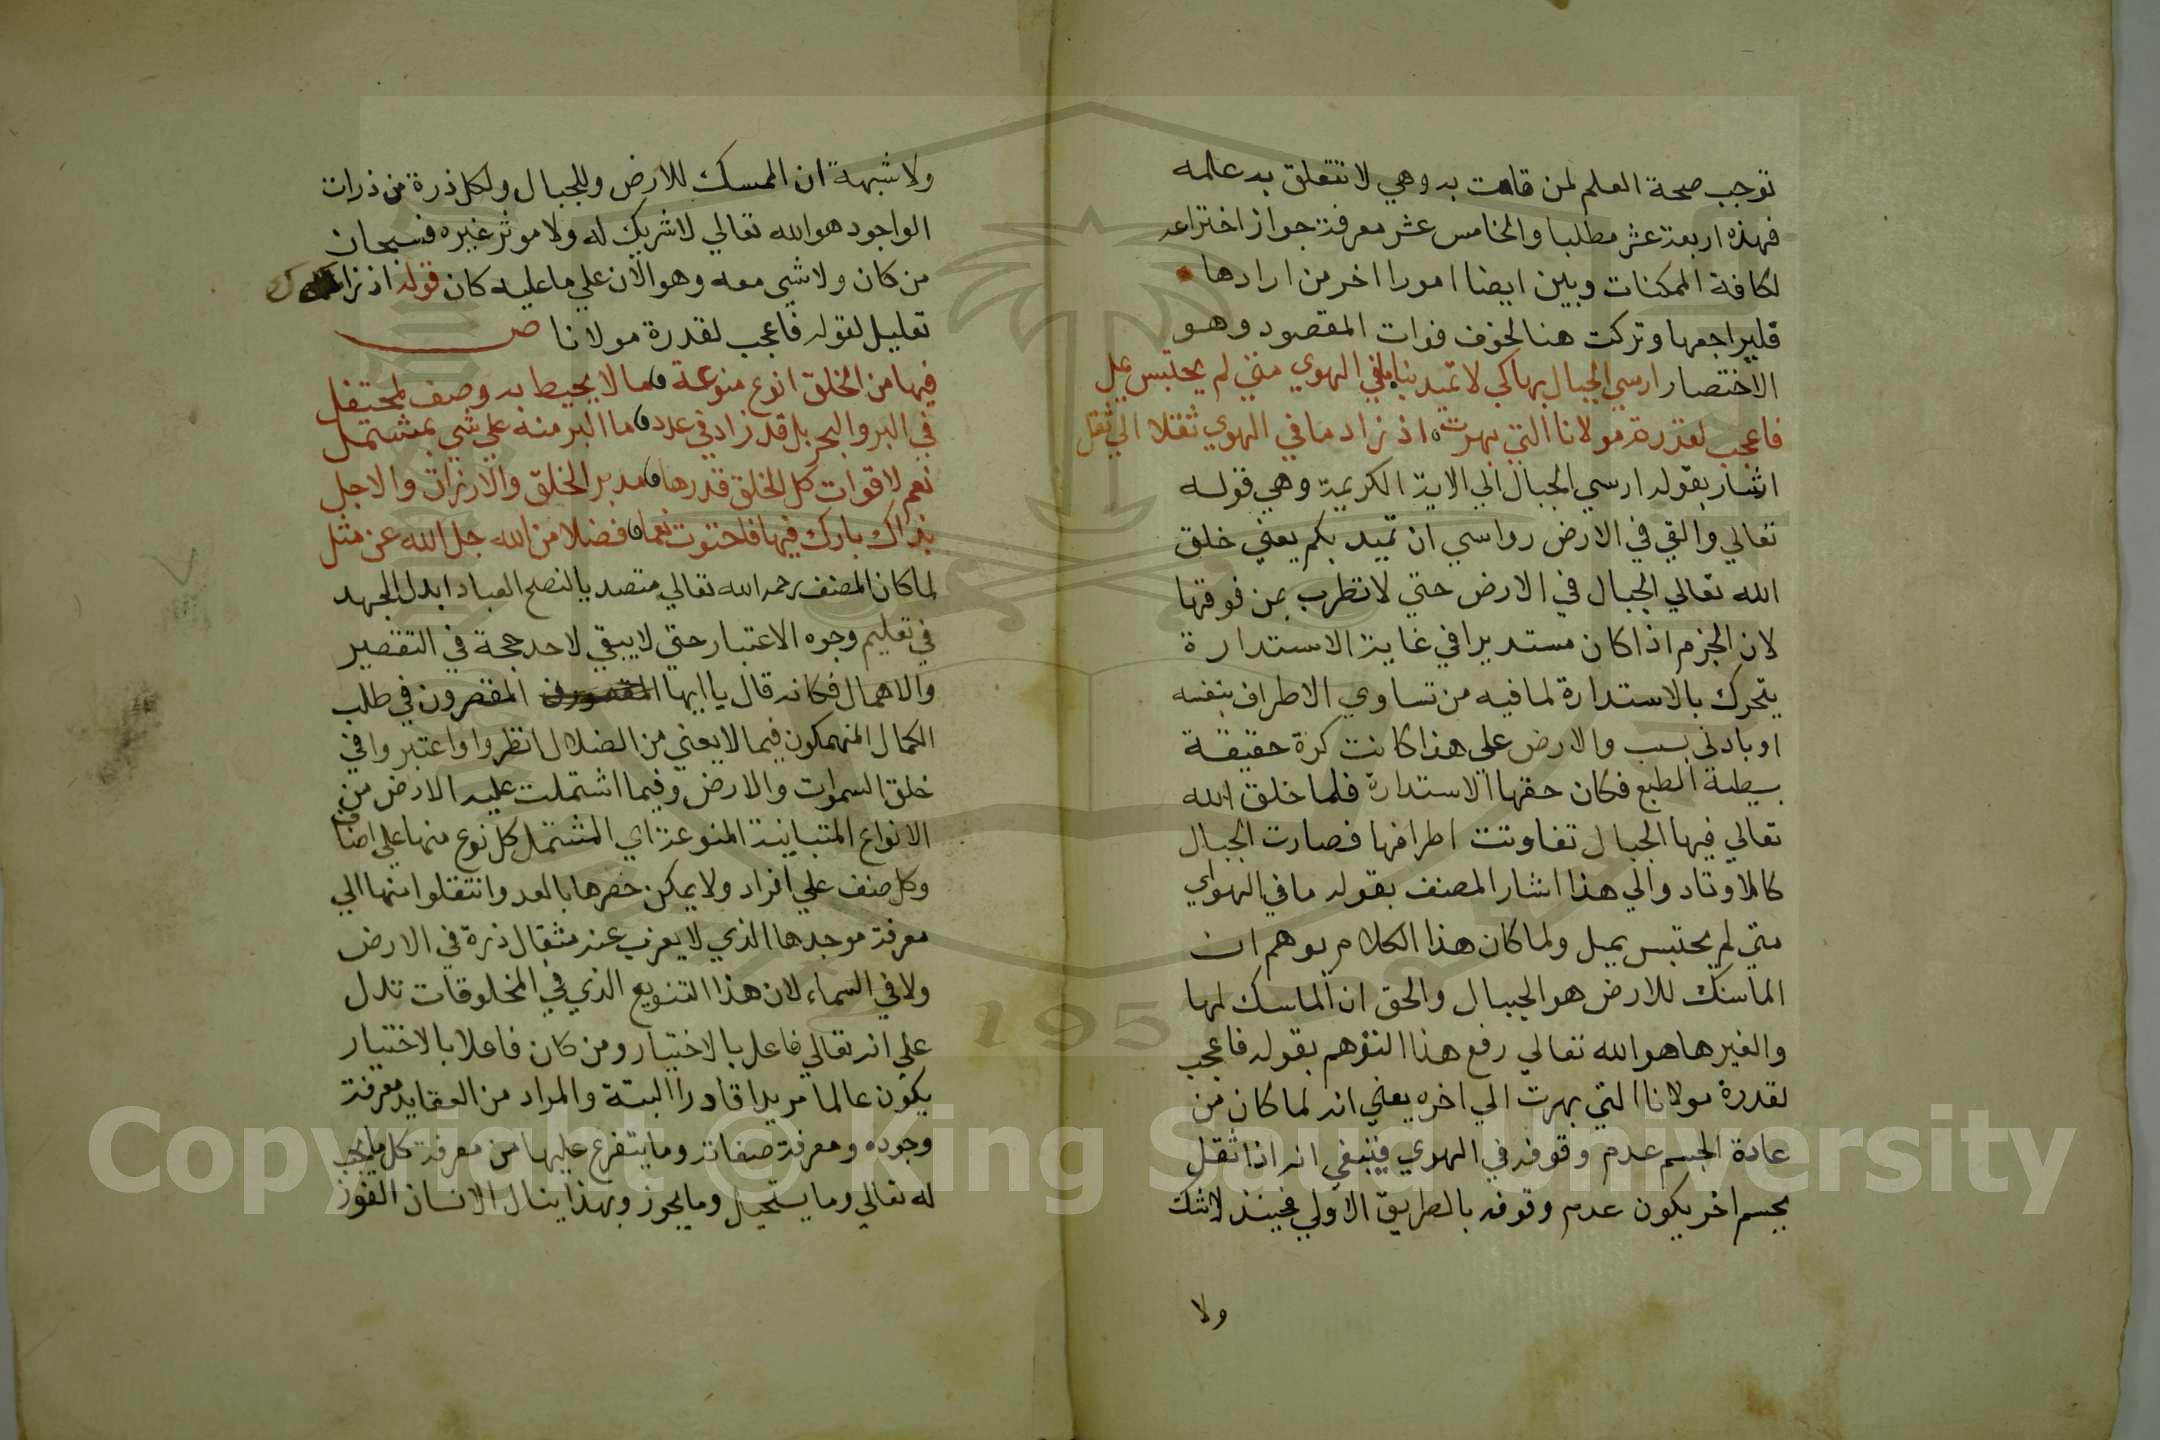 توجب صحة العلم لمن قامت به وهي لا تتعلق به عالمه
فهذه اربعة عشر مطلبا والخامس عشر معرفة جواز اختراعه
لكافة الممكنات وبين ايضا امورا اخر من ارادها
فليراجعها وتركت هنا لخوف فوات المقصود وهو
الاختصار ارسي الجبال بها كي لا تميد بنا يلفي الهوي متي لم يحتبس يمل
فاعجب لقدرة مولانا التي بهرت اذ زاد ما في الهوي ثقلا الي ثقل
اشار بقوله ارسي الجبال الي الاية الكريمة وهي قوله
تعالي والقي في الارض رواسي ان تميد بكم يعني خلق
الله تعالي الجبال في الارض حتي لا تطرب بمن فوقها
لان الجزم اذا كان مستديرا في غاية الاستدارة
يتحرك بالاستدارة لما فيه من تساوي الاطراف بنفسه
او بادني بسب والارض علي هذا كانت كرة حقيقة
بسيطة الطبع فكان حقها الاستدارة فلما خلق الله
تعالي فيها الجبال تفاوتت اطرافها فصارت الجبال
كالاوتاد والي هذا اشار المصنف بقوله ما في الهواي
متي لم يحتبس يميل ولما كان هذا الكلام يوهم ان
الماسك للارض هو الجبال والحق ان الماسك لها
والغيرها هو الله تعالي رفع هذا التوهم بقوله فاعجب
لقدرة مولانا التي بهرت الي اخره يعني انه لما كان من
عادة الجسم عدم وقوفه في الهوي فينبغي انه اذا ثقل
بجسم اخر يكون عدم وقوفه بالطريق الاولي فحينئذ لاشك
ولا
ولا شبهة ان الممسك للارض وللجبال ولكل ذرة من ذرات
الواجود هو الله تعالي لا شريك له ولا موثر غيره فسبحان
من كان ولا شيي معه وهو الان علي ما عليه كان قوله اذ زاد
تعليل لقوله فاعجب لقدرة مولانا ص
فيها من الخلق انوع منوعة ما لا يحيط به وصف لمحتفل
في البر والبحر بل قد زاد في عدد ما البر منه علي شيي بمشتمل
نعم لاقوات كل الخلق قدرها مدبر الخلق والارزاق والاجل
بذاك بارك فيها فاحتوت نعما فضلا من الله جل الله عن مثل
لما كان المصنف رحمه الله تعالي متصديا لنصح العباد ابدل الجهد
في تعليم وجوه الاعتبار حتي لا يبقي لاحد حجة في التقصير
والاهمال فكانه قال يا ايها المقصرون في طلب
الكمال المنهمكون فيما لا يعني من الضلال انظروا واعتبروا في
خلق السموات والارض وفيما اشتملت عليه الارض من
الانواع المتباينة المنوعة اي المشتمل كل نوع منها علي اصناف
وكل صنف علي افراد ولا يمكن حصرها بالعد وانتقلوا منها الي
معرفة موجدها الذي لا يعزب عنه مثقال ذرة في الارض
ولا في السماء لان هذا التنويع الذي في المخلوقات تدل
علي انه تعالي فاعل بالاختيار ومن كان فاعلا بالاختيار
يكون عالما مريدا قادرا البتة والمراد من العقايد معرفة
وجوده ومعرفة صفاته وما يتفرع عليها من معرفة كل ما يجب
له تعالي وما يستحيل وما يجوز وبهذا ينال الانسان الفوز
Copyright © King Saud University